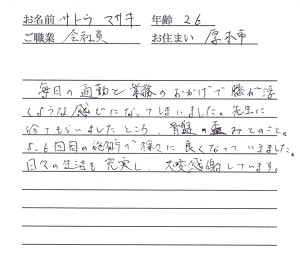 お名前 サトウ マサキ 年齢 26
ご職業 会社員 お住まい 厚木市
毎日の通勤と業務のおかげで腰が
ような感じになってしまいました。先生に
診てもらいましたところ、骨盤の歪みとのこと。
5.6回目の施術で徐々に良くなっていきました。
日々の生活も充実し、大変感謝しています。